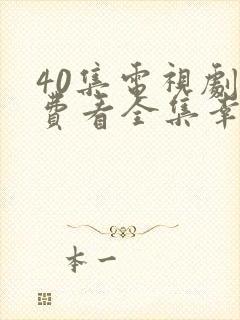 40集電視劇
費看全集幸
本一